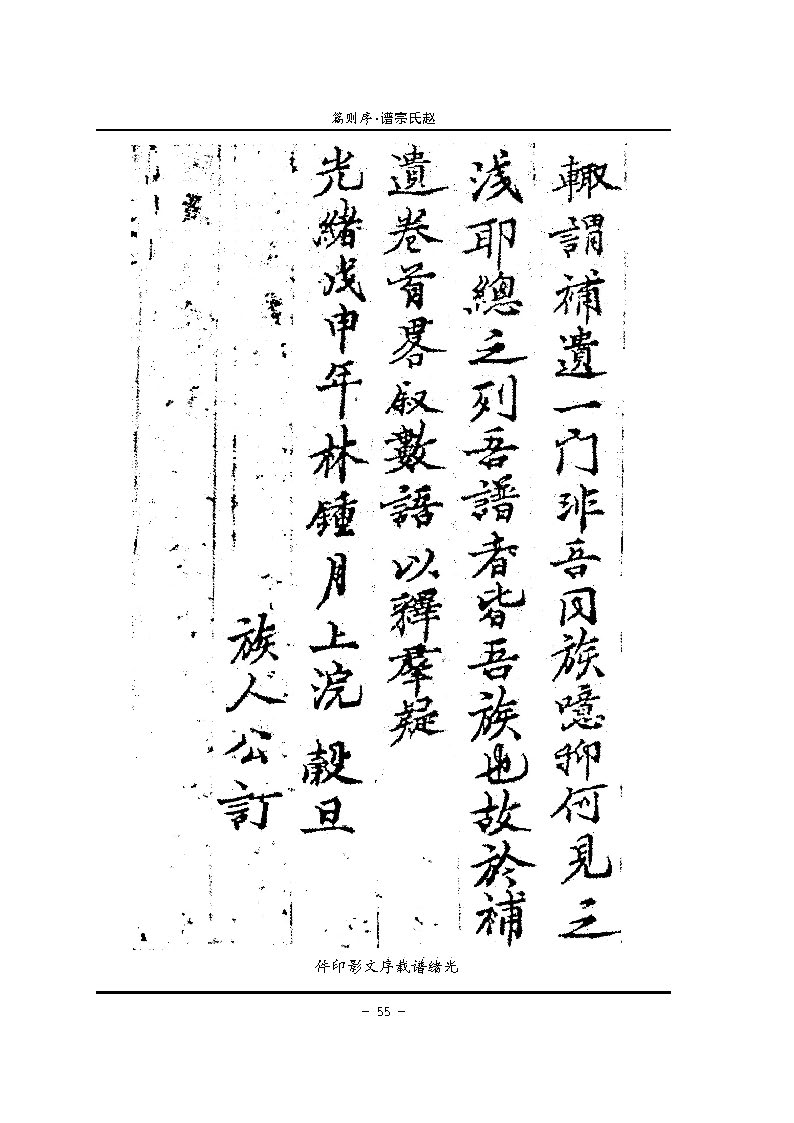 篇则序·谱宗氏赵
輙謂補遺一门非吾同族噫抑何見之
浅耶總之列吾譜者皆吾族也故於補
遺卷首畧叙數語以釋羣疑
光緒戊申年林鍾月上浣 穀旦
族人公訂
件印影文序载谱绪光
- 55 -